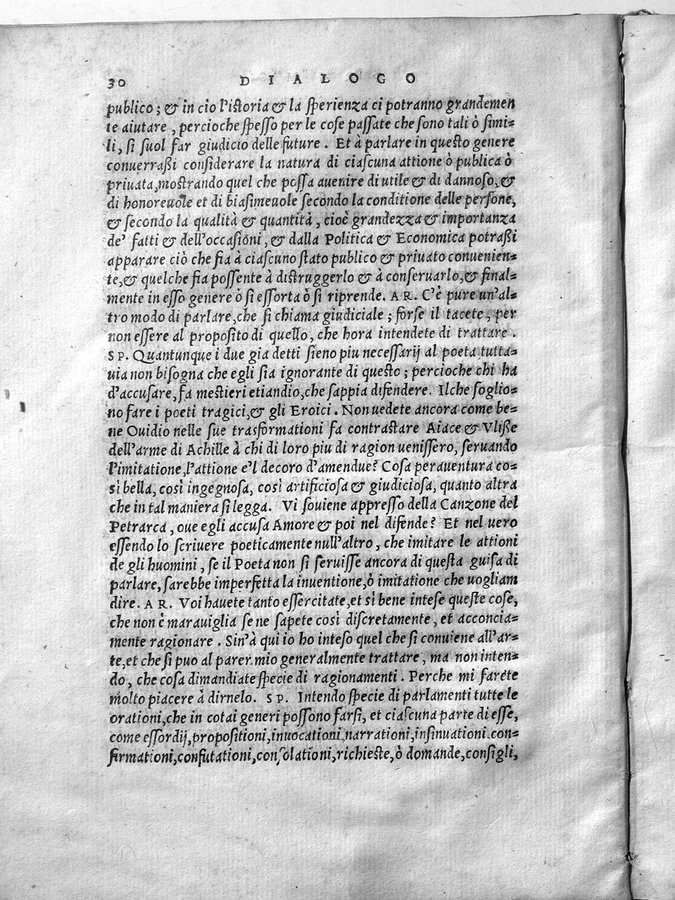 30 DIALOGO
publico; & in cio l'istoria & la sperienza ci potranno grandemen
te aiutare, percioche spesso per le cose passate che sono tali ò simi-
li, si suol far giudicio delle future. Et à parlare in questo genere
conuerraßi considerare la natura di ciascuna attione ò publica ò
priuata, mostrando quel che possa auenire di utile & di dannoso, &
di honoreuole et di biasimeuole secondo la conditione delle persone,
& secondo la qualità & quantità, cioè grandezza & importanza
de' fatti & dell'occasioni, & dalla Politica & Economica potraßi
apparare ciò che fia à ciascuno stato publico & priuato conuenien-
te, & quelche fia possente à distruggerlo & à conseruarlo, & final-
mente in esso genere ò si essorta ò si riprende. AR. C'è pure un'al-
tro modo di parlare, che si chiama giudiciale; forse il tacete, per
non essere al proposito di quello, che hora intendete di trattare.
SP. Quantunque i due gia detti sieno piu necessarij al poeta tutta-
uia non bisogna che egli sia ignorante di questo; percioche chi ha
d'accusare, fa mestieri etiandio, che sappia difendere. Ilche soglio-
no fare i poeti tragici, & gli Eroici. Non uedete ancora come be-
ne Ouidio nelle sue trasformationi fa contrastare Aiace & Vlisse
dell'arme di Achille à chi di loro piu di ragion uenissero, seruando
l'imitatione, l'attione e'l decoro d'amendue? Cosa perauentura co-
sì bella, così ingegnosa, così artificiosa & giudiciosa, quanto altra
che in tal maniera si legga. Vi souiene appresso della Canzone del
Petrarca, oue egli accusa Amore & poi nel difende? Et nel uero
essendo lo scriuere poeticamente null'altro, che imitare le attioni
de gli huomini, se il Poeta non si seruisse ancora di questa guisa di
parlare, sarebbe imperfetta la inuentione, ò imitatione che uogliam
dire. AR. Voi hauete tanto essercitate, et sì bene intese queste cose,
che non è marauiglia se ne sapete così discretamente, et acconcia-
mente ragionare. Sin'à qui io ho inteso quel che si conuiene all'ar-
te, et che si puo al parer mio generalmente trattare, ma non inten-
do, che cosa dimandiate specie di ragionamenti. Perche mi farete
molto piacere à dirnelo. SP. Intendo specie di parlamenti tutte le
orationi, che in cotai generi possono farsi, et ciascuna parte di esse,
come essordij, propositioni, inuocationi, narrationi, insinuationi. con-
firmationi, confutationi, consolationi, richieste, ò domande, consigli,